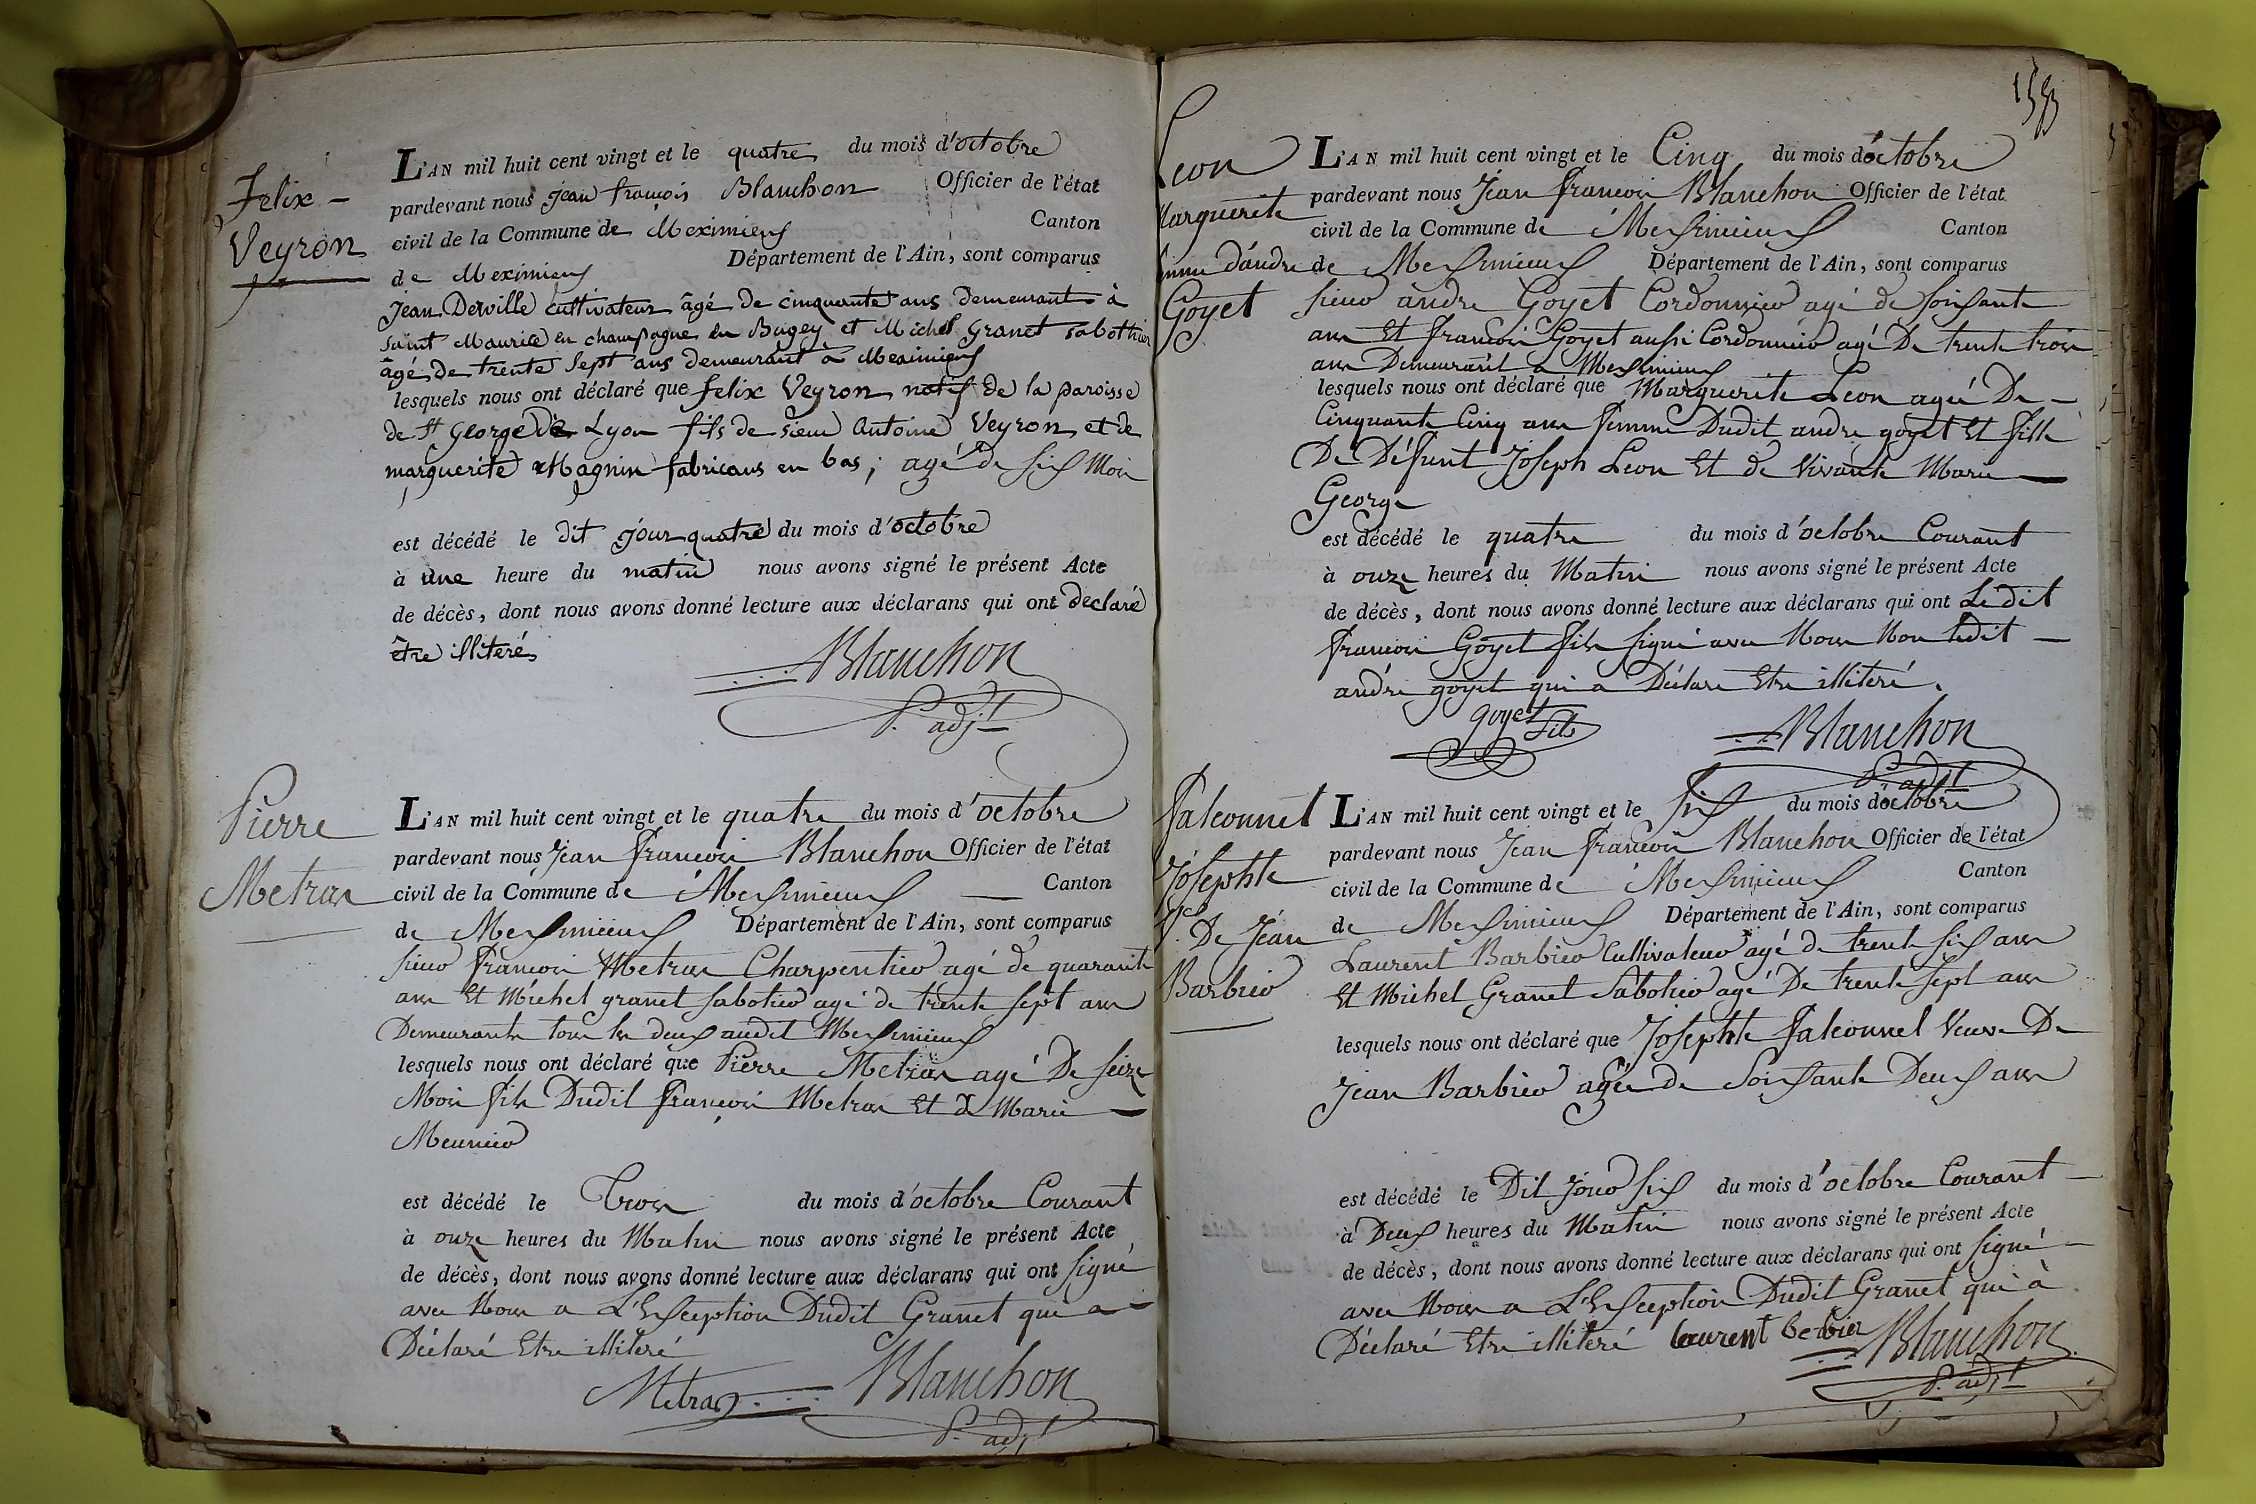 Felix -
Veyron
L'AN mil huit cent vingt et le quatre du mois d'octobre
pardevant nous Jean françois Blanchon Officier de l'état
civil de la Commune de Meximieux Canton
de Meximieux Département de l'Ain, sont comparus
Jean Derville cultivateur âgé de cinquante ans demeurant à
Saint Maurice en champagne en Bugey et Michel Granet sabothier
âgé de trente sept ans demeurant à Meximieux
lesquels nous ont déclaré que felix Veyron natif de la paroisse
de St George de Lyon fils de sieur Antoine Veyron et de
marguerite Magnin fabricans en bas; agé de six Mois
est décédé le dit jour quatre du mois d'octobre
à une heure du matin nous avons signé le présent Acte
de décès, dont nous avons donné lecture aux déclarans qui ont declaré
être illiterés
Blanchon
P. adjt
Pierre
Metras
L'AN mil huit cent vingt et le quatre du mois d'octobre
pardevant nous Jean françois Blanchon Officier de l'état
civil de la Commune de Meximieux Canton
de Meximieux Département de l'Ain, sont comparus
sieur françois Metras Charpentier agé de quarante
ans Et Michel granet sabotier agé de trente sept ans
Demeurants tous les deux audit Meximieux
lesquels nous ont déclaré que Pierre Metras agé De seize
Mois fils Dudit françois Metras Et de Marie
Meunier
est décédé le Trois du mois d'octobre Courant
à onze heures du Matin nous avons signé le présent Acte
de décès, dont nous avons donné lecture aux déclarans qui ont signé
avec Nous a L'Exception Dudit Granet qui a
Déclaré Etre illiteré
Metras Blanchon
P. adjt
1583
Leon
Marguerite
femme d'andre
Goyet
L'AN mil huit cent vingt et le Cinq du mois d'octobre
pardevant nous Jean françois Blanchon Officier de l'état
civil de la Commune de Meximieux Canton
de Meximieux Département de l'Ain, sont comparus
sieur andre Goyet Cordonnier agé de soixante
ans Et françois Goyet aussi Cordonnier agé De trente trois
ans Demeurant a Meximieux
lesquels nous ont déclaré que Marguerite Leon agée De
Cinquante Cinq ans femme Dudit andre goyet Et fille
De Défunt Joseph Leon Et de Vivante Marie
George
est décédé le quatre du mois d'octobre Courant
à onze heures du Matin nous avons signé le présent Acte
de décès, dont nous avons donné lecture aux déclarans qui ont Ledit
françois Goyet fils signé avec Nous Non ledit
andré goyet qui a Déclare Etre illiteré.
goyet fils Blanchon
P. adjt
Falconnet
Josephte
Ve De Jean
Barbier
L'AN mil huit cent vingt et le six du mois d'octobre
pardevant nous Jean françois Blanchon Officier de l'état
civil de la Commune de Meximieux Canton
de Meximieux Département de l'Ain, sont comparus
Laurent Barbier Cultivateur agé de trente six ans
Et Michel Granet Sabotier agé De trente sept ans
lesquels nous ont déclaré que Josephte Falconnet Veuve De
Jean Barbier agée de Soixante Deux ans
est décédé le Dit Jour six du mois d'octobre Courant
à Deux heures du Matin nous avons signé le présent Acte
de décès, dont nous avons donné lecture aux déclarans qui ont signé
avec Nous a L'Exception Dudit Granet qui à
Déclaré Etre illiteré laurent berbier Blanchon
P. adjt